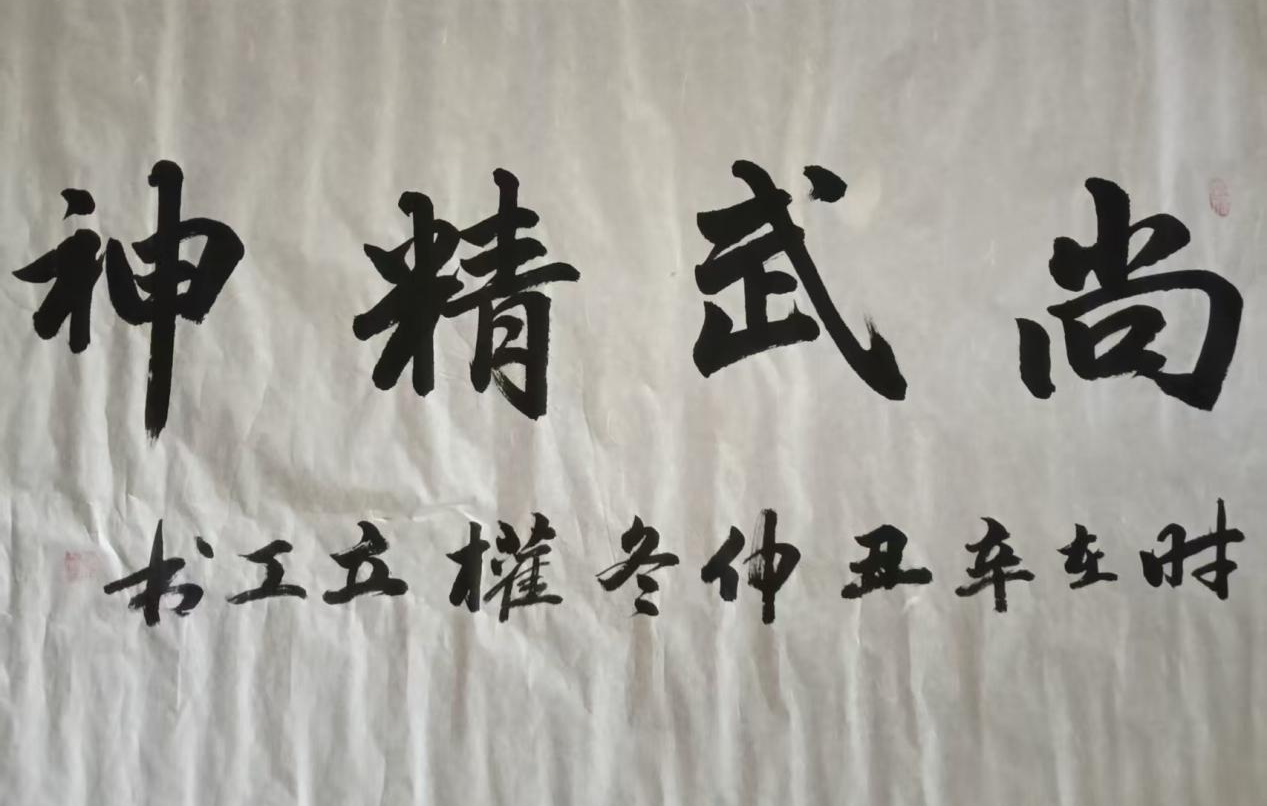 尚武精神
时在辛丑仲冬權立工书